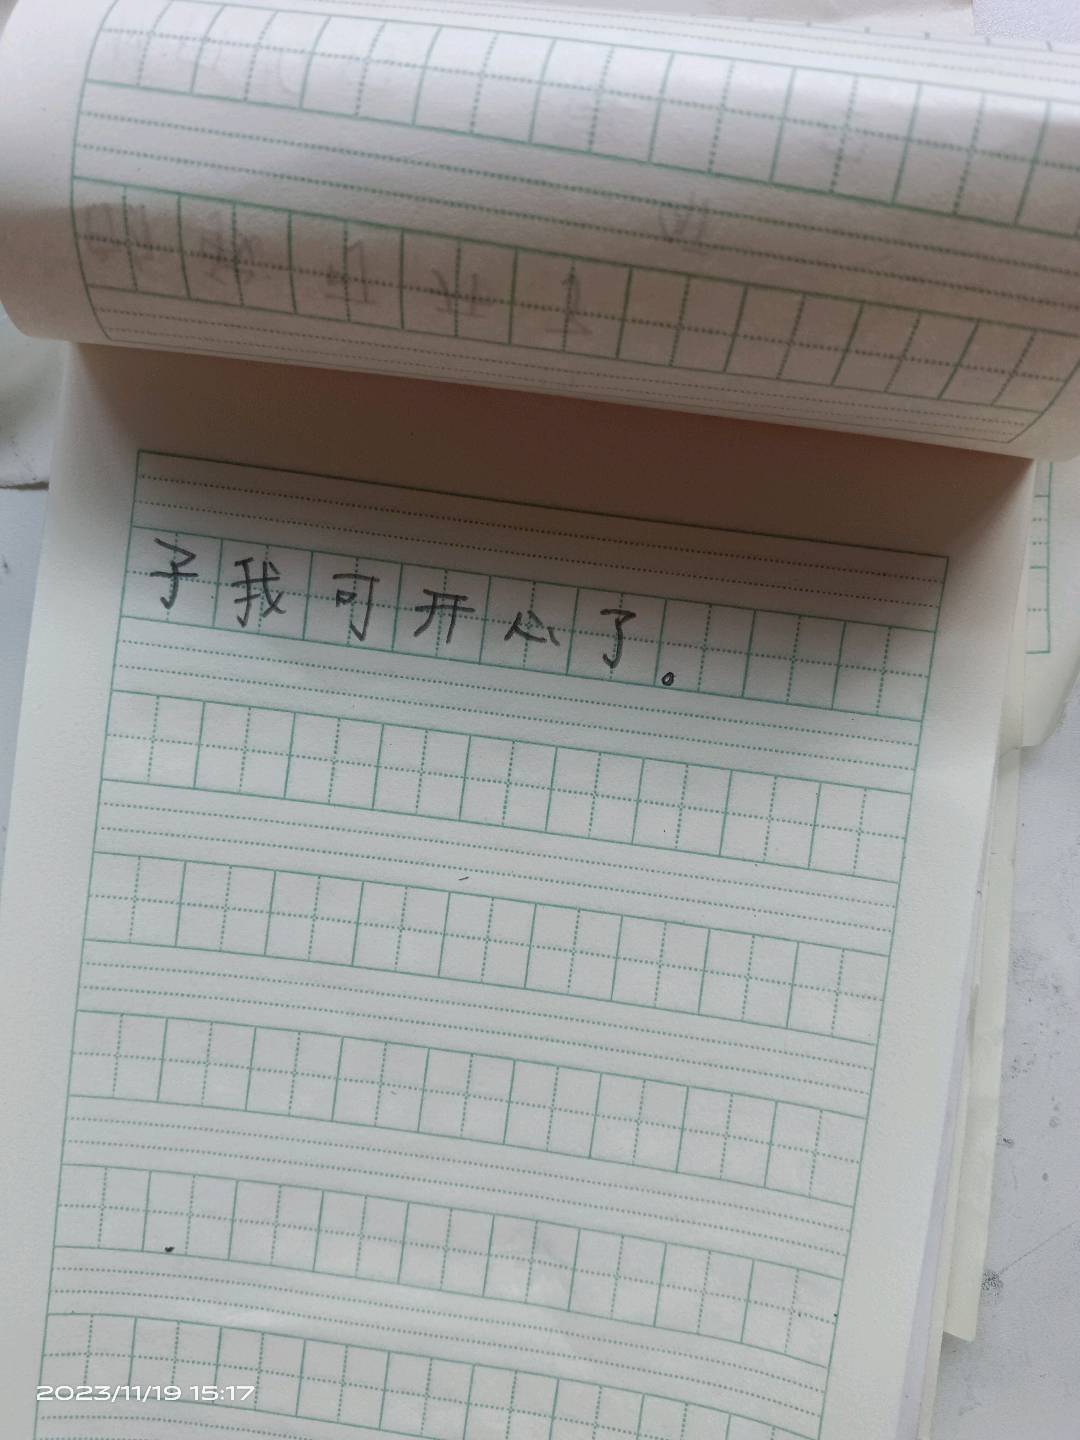 子我可开心了。
2023/11/19 15:17